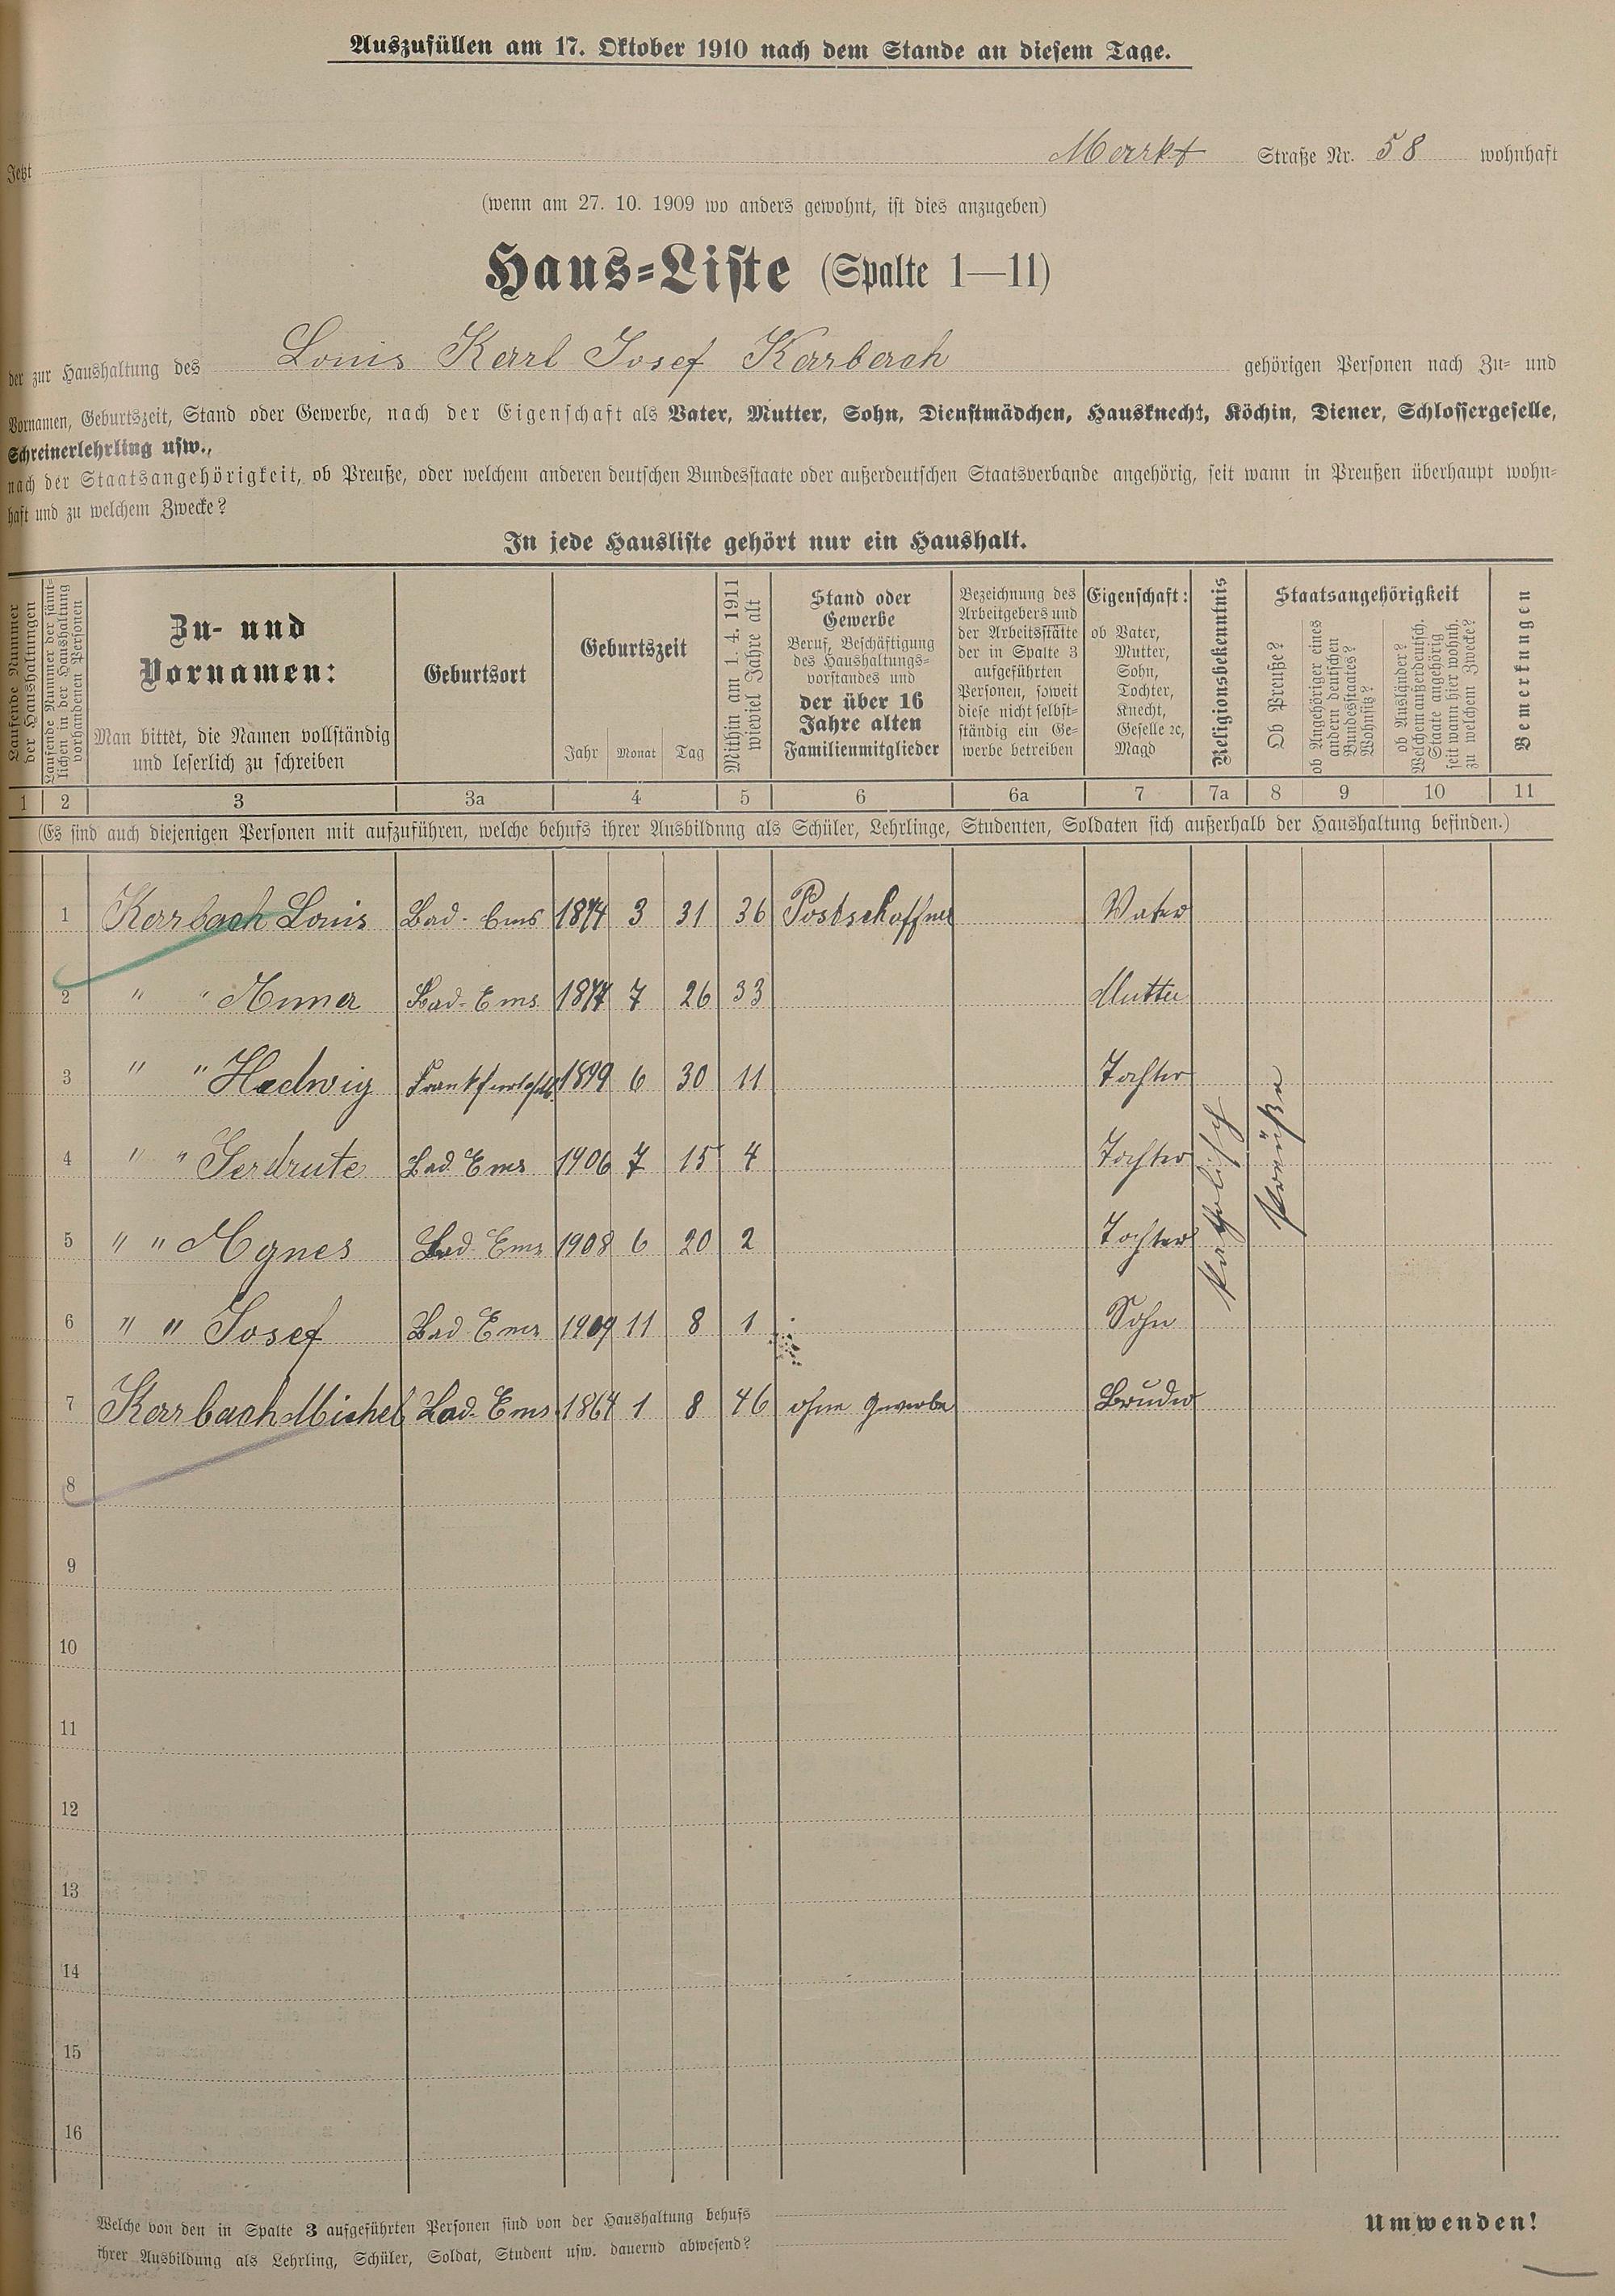 Auszufüllen am 17. Oktober 1910 nach dem Stande an diesem Tage.
Jetzt Markt Straße Nr. 58 wohnhaft
(wenn am 27. 10. 1909 wo anders gewohnt, ist dies anzugeben)
Haus-Liste (Spalte 1—11)
der zur Haushaltung des Louis Karl Josef Karbach gehörigen Personen nach Zu- und
Vornamen, Geburtszeit, Stand oder Gewerbe, nach der Eigenschaft als Vater, Mutter, Sohn, Dienstmädchen, Hausknecht, Köchin, Diener, Schlossergeselle,
Schreinerlehrling usw.,
nach der Staatsangehörigkeit, ob Preuße, oder welchem anderen deutschen Bundesstaate oder außerdeutschen Staatsverbande angehörig, seit wann in Preußen überhaupt wohn-
haft und zu welchem Zwecke?
In jede Hausliste gehört nur ein Haushalt.
Laufende Nummer
der Haushaltungen
Laufende Nummer der sämt-
lichen in der Haushaltung
vorhandenen Personen
Zu- und
Vornamen:
Man bittet, die Namen vollständig
und leserlich zu schreiben
Geburtsort
Geburtszeit
Jahr Monat Tag
Mithin am 1. 4. 1911
wieviel Jahre alt
Stand oder
Gewerbe
Beruf, Beschäftigung
des Haushaltungs-
vorstandes und
der über 16
Jahre alten
Familienmitglieder
Bezeichnung des
Arbeitgebers und
der Arbeitsstätte
der in Spalte 3
aufgeführten
Personen, soweit
diese nicht selbst-
ständig ein Ge-
werbe betreiben
Eigenschaft:
ob Vater,
Mutter,
Sohn,
Tochter,
Knecht,
Geselle ꝛc,
Magd
Religionsbekenntnis
Staatsangehörigkeit
Ob Preuße?
ob Angehöriger eines
andern deutschen
Bundesstaates?
Wohnsitz?
ob Ausländer?
Welchem außerdeutsch.
Staate angehörig
seit wann hier wohnh.
zu welchem Zwecke?
Bemerkungen
1 2 3 3a 4 5 6 6a 7 7a 8 9 10 11
(Es sind auch diejenigen Personen mit aufzuführen, welche behufs ihrer Ausbildung als Schüler, Lehrlinge, Studenten, Soldaten sich außerhalb der Haushaltung befinden.)
1 Karbach Louis Bad-Ems 1874 3 31 36 Postschaffner Vater
2 " " Anna Bad-Ems 1877 7 26 33 Mutter
3 " " Hedwig 1899 6 30 11 Tochter
4 " " Gerdrute Bad Ems 1906 7 15 4 Tochter
5 " " Agnes Bad Ems 1908 6 20 2 Tochter
6 " " Josef Bad Ems 1909 11 8 1 Sohn
7 Karbach Michel Bad-Ems 1864 1 8 46 ohne Gewerbe Bruder
katholisch
Preuße
8
9
10
11
12
13
14
15
16
Welche von den in Spalte 3 aufgeführten Personen sind von der Haushaltung behufs
ihrer Ausbildung als Lehrling, Schüler, Soldat, Student usw. dauernd abwesend?
Umwenden!